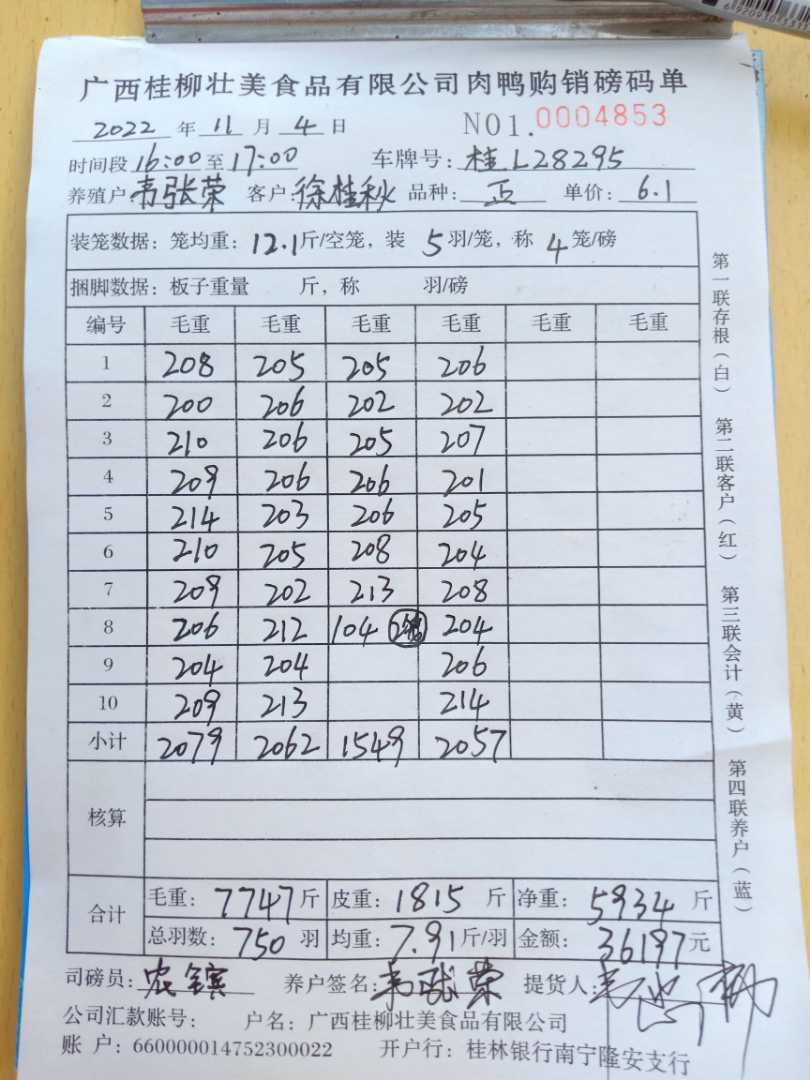 广西桂柳壮美食品有限公司肉鸭购销磅码单
2022 年 11 月 4 日 NO1. 0004853
时间段 16:00 至 17:00 车牌号: 桂L28295
养殖户: 韦张荣 客户: 徐桂秋 品种: 正 单价: 6.1
装笼数据: 笼均重: 12.1 斤/空笼, 装 5 羽/笼, 称 4 笼/磅
捆脚数据: 板子重量 斤, 称 羽/磅
编号 毛重 毛重 毛重 毛重 毛重 毛重
1 208 205 205 206
2 200 206 202 202
3 210 206 205 207
4 209 206 206 201
5 214 203 206 205
6 210 205 208 204
7 209 202 213 208
8 206 212 104 204
9 204 204 206
10 209 213 214
小计 2079 2062 1549 2057
核算
合计
毛重: 7747 斤 皮重: 1815 斤 净重: 5934 斤
总羽数: 750 羽 均重: 7.91 斤/羽 金额: 36197 元
司磅员: 农镔 养户签名: 韦张荣 提货人:
公司汇款账号: 户名: 广西桂柳壮美食品有限公司
账 户: 660000014752300022 开户行: 桂林银行南宁隆安支行
第一联存根(白) 第二联客户(红) 第三联会计(黄) 第四联养户(蓝)